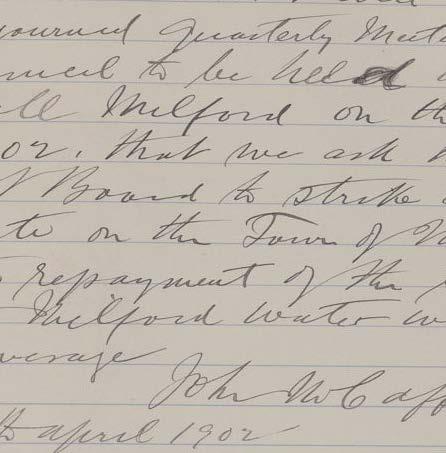 journed Quarterly Meet
uncil to be held
ll Milford on th
02, that we ask
t Board to strike
te on the Town of M
repayment of the
Milford water w
werage
John McCaff
th april 1902